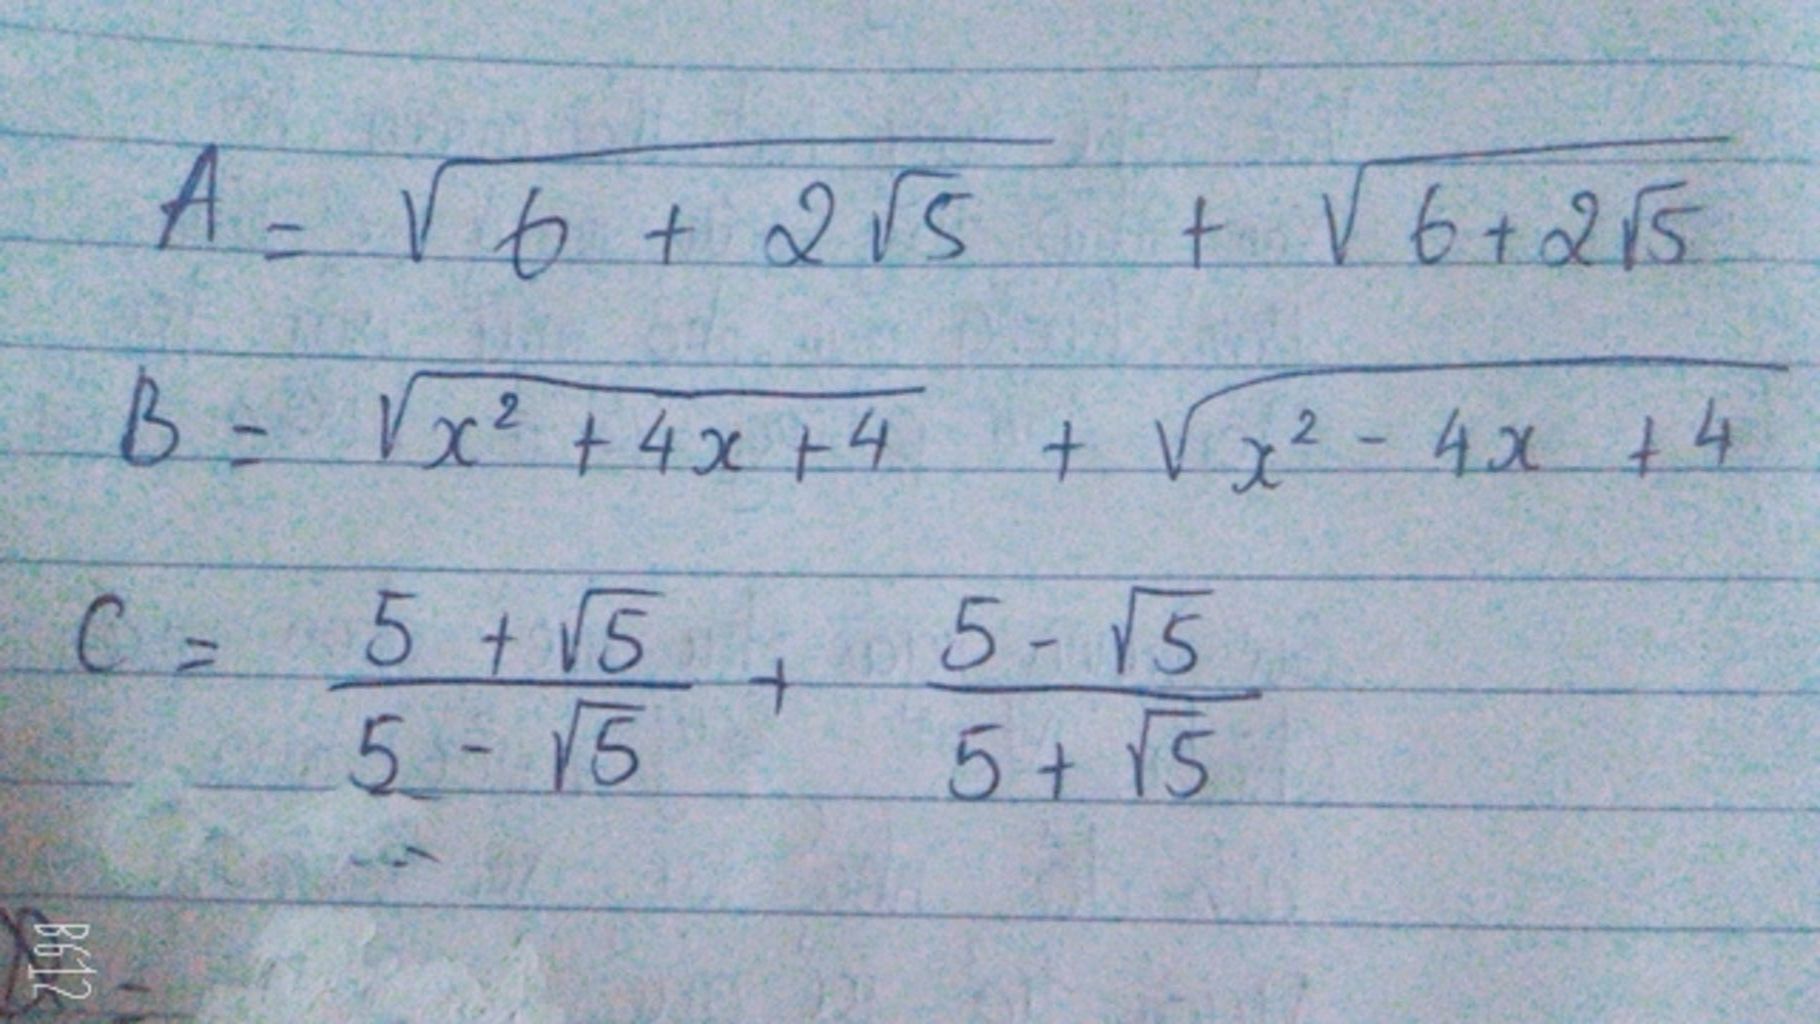 A = √(6 + 2√5) + √(6 + 2√5)
B = √(x² + 4x + 4) + √(x² - 4x + 4)
C = (5 + √5)/(5 - √5) + (5 - √5)/(5 + √5)
B612